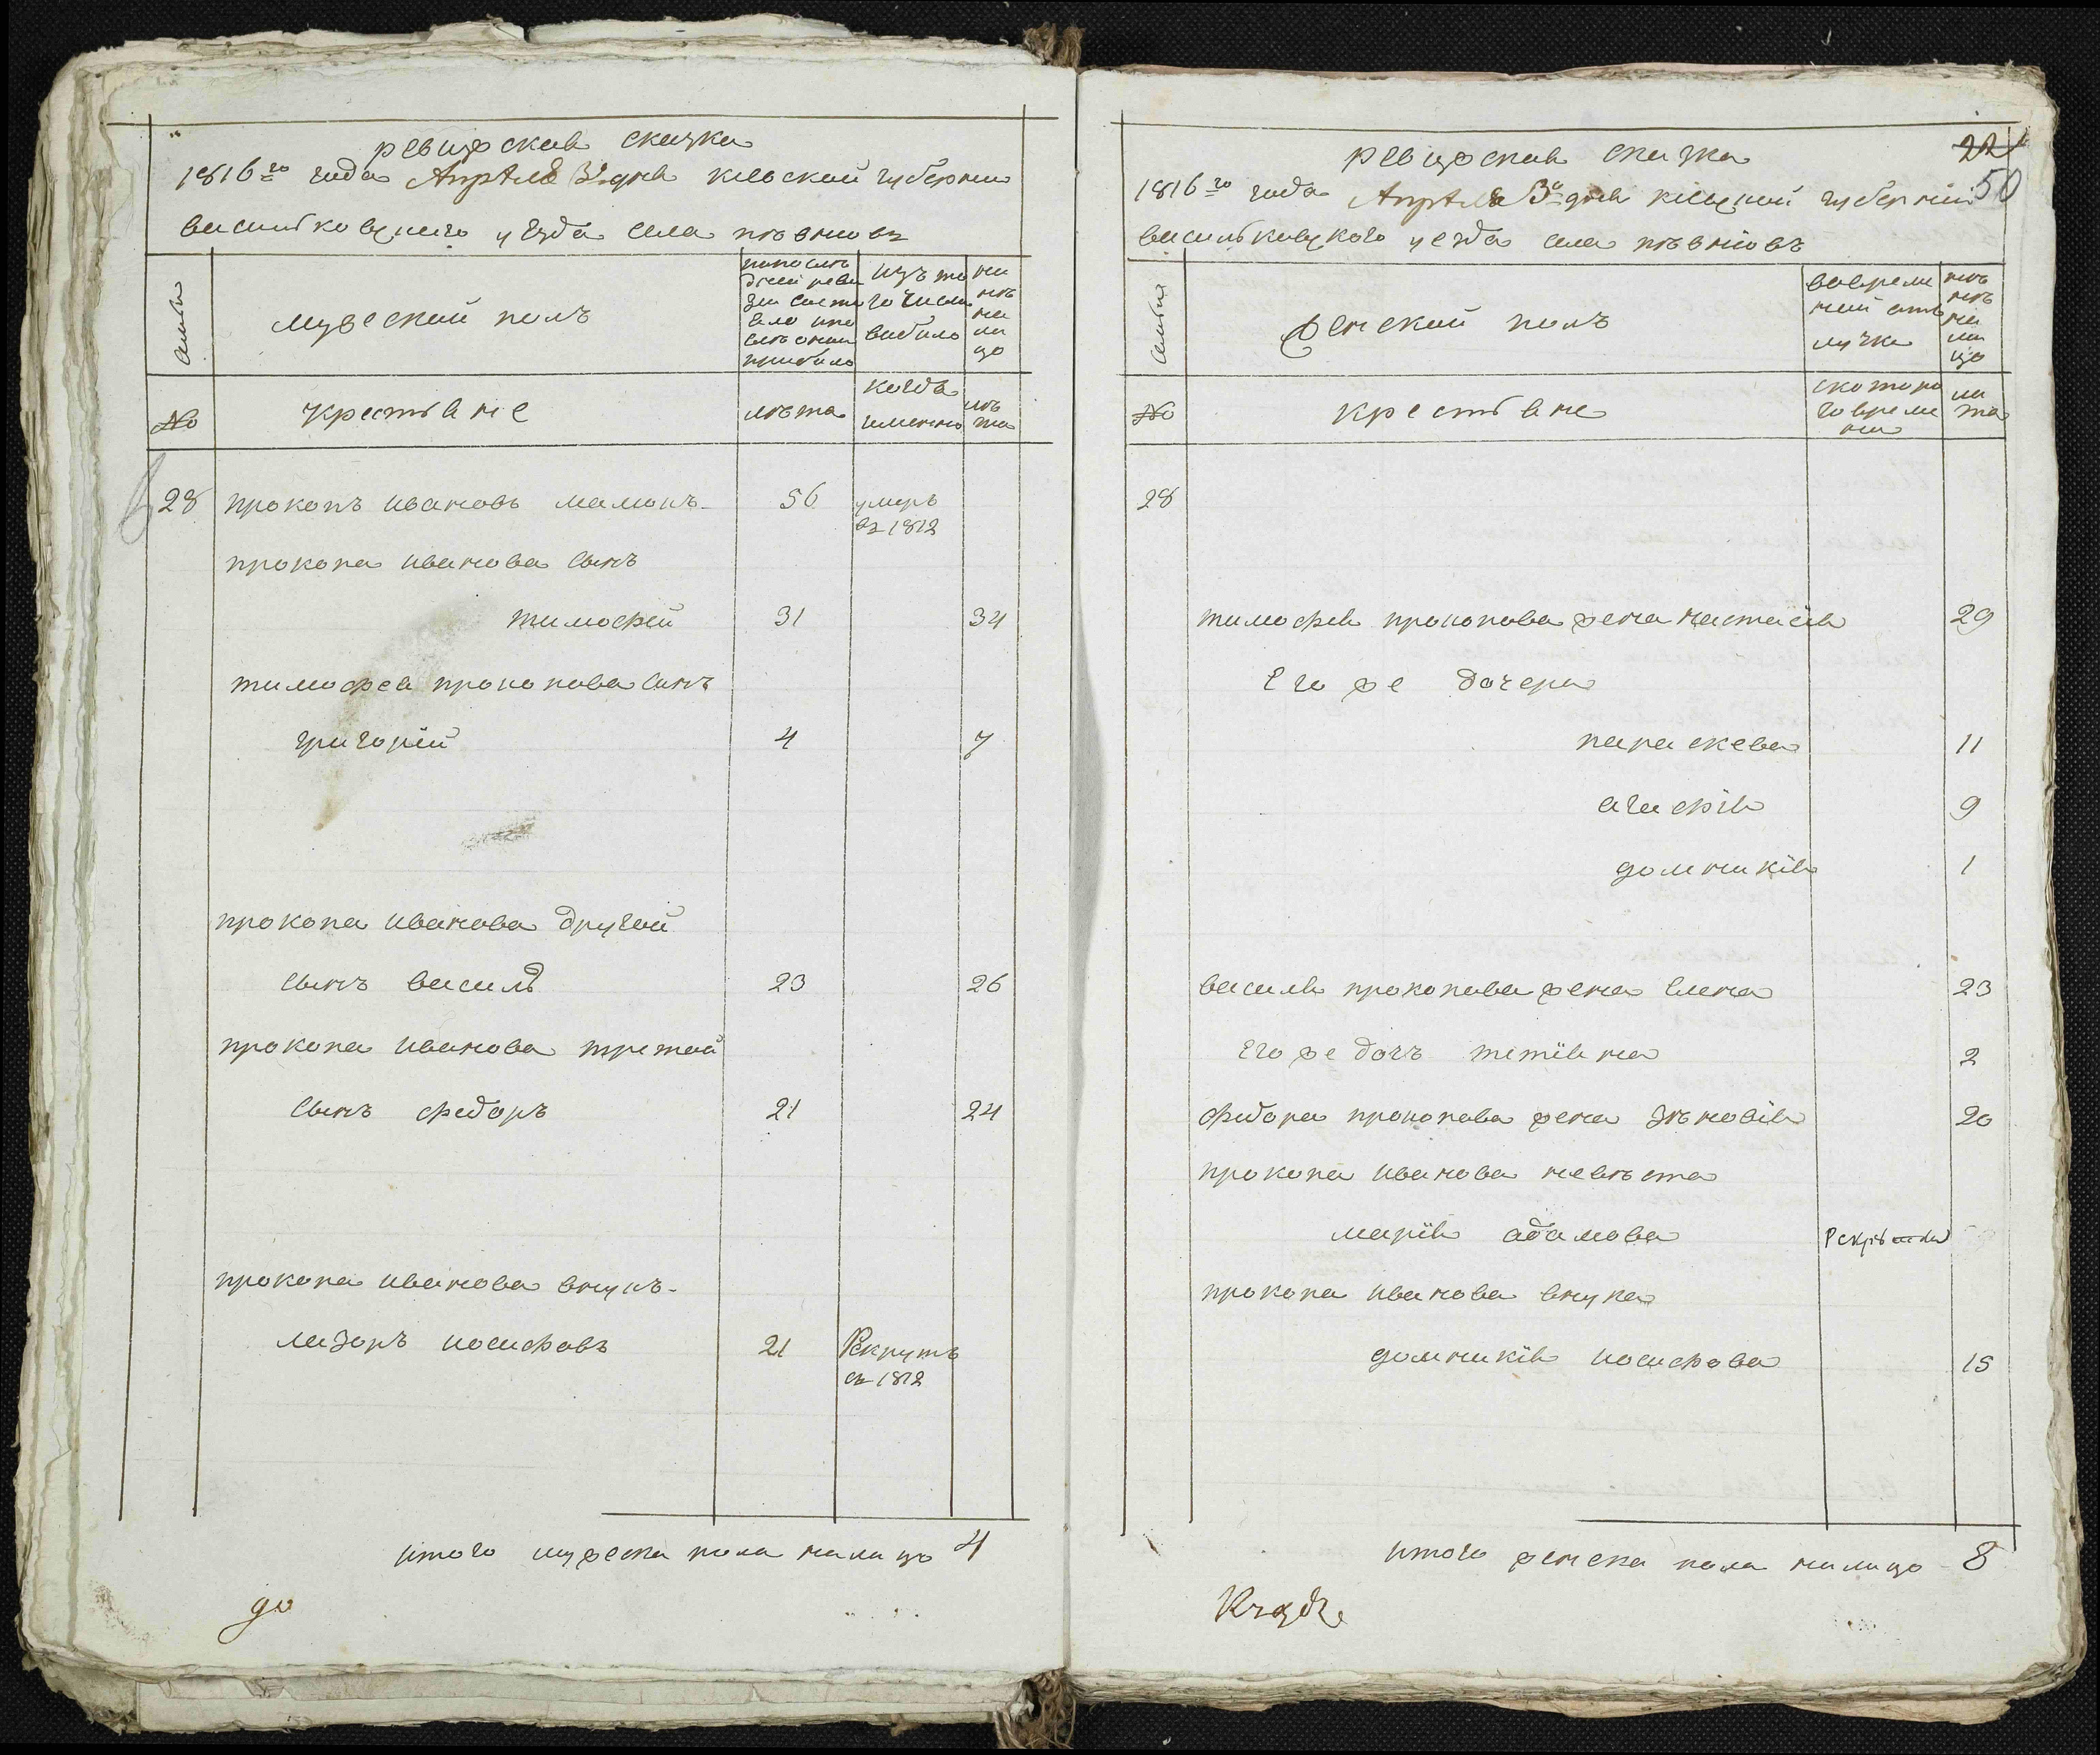 ревизская сказка
1816го года Апреля 3 дня киевской губернии
васильковского уезда села
семья
мужеский полъ
по последней ревизии состояло и после оной прибыло
изъ того числа выбыло
ныне налицо
№
крестьяне
лета
когда именно
лета
28 прокопъ ивановъ мамонъ 56 умеръ въ 1812
прокопа иванова сынъ
тимофей 31 34
тимофея прокопова сынъ
григорій 4 7
прокопа иванова другой
сынъ василь 23 26
прокопа иванова третей
сынъ федоръ 21 24
прокопа иванова внукъ
лазоръ иосифовъ 21 Рекрутъ
съ 1812
итого мужеска пола налицо 4
до
22
50
ревизская сказка
1816го года Апреля 3 дня киевской губерніи
васильковского уезда села
семья
женской полъ
во временной отлучке
ныне налицо
№
крестьяне
с которого времени
лета
28
тимофея прокопова жена настасія 29
Его же дочери
параскева 11
агафія 9
домникія 1
василя прокопова жена Елена 23
Его же дочъ тетіяна 2
федора прокопова жена Зѣновія 20
прокопа иванова невѣста
марія адамова
прокопа иванова внука
домникія иосифова 15
итого женска пола налицо 8